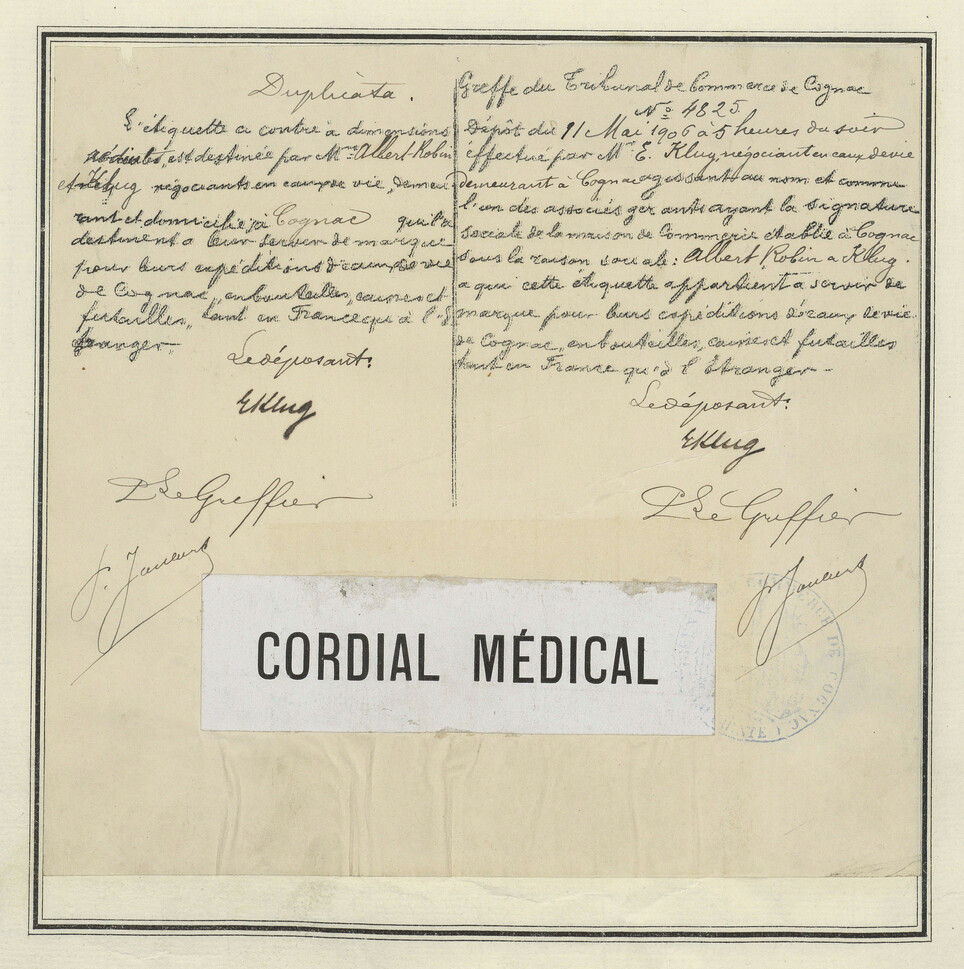 Duplicata.
L'étiquette ci contre à dimensions
réduites, est destinée par Mrs Albert Robin
et Klug négociants en eaux de vie, demeu
rant et domiciliés à Cognac qu'ils
destinent à leur servir de marque
pour leurs expéditions d'eaux de vie
de Cognac, en bouteilles, caisses et
futailles, tant en France qu'à l'é
tranger.
Le déposant:
E Klug
Pr Le Greffier
Greffe du Tribunal de Commerce de Cognac
No 4825
Dépôt du 11 Mai 1906 à 5 heures du soir
effectué par Mr E. Klug, négociant en eaux de vie
demeurant à Cognac agissant au nom et comme
l'un des associés gérants ayant la signature
sociale de la maison de Commerce établie à Cognac
sous la raison sociale: Albert Robin & Klug.
a qui cette étiquette appartient à servir de
marque pour leurs expéditions d'eaux de vie
de Cognac, en bouteilles, caisses et futailles
tant en France qu'à l'étranger.
Le déposant:
E Klug
Pr Le Greffier
CORDIAL MÉDICAL
DE COGNAC